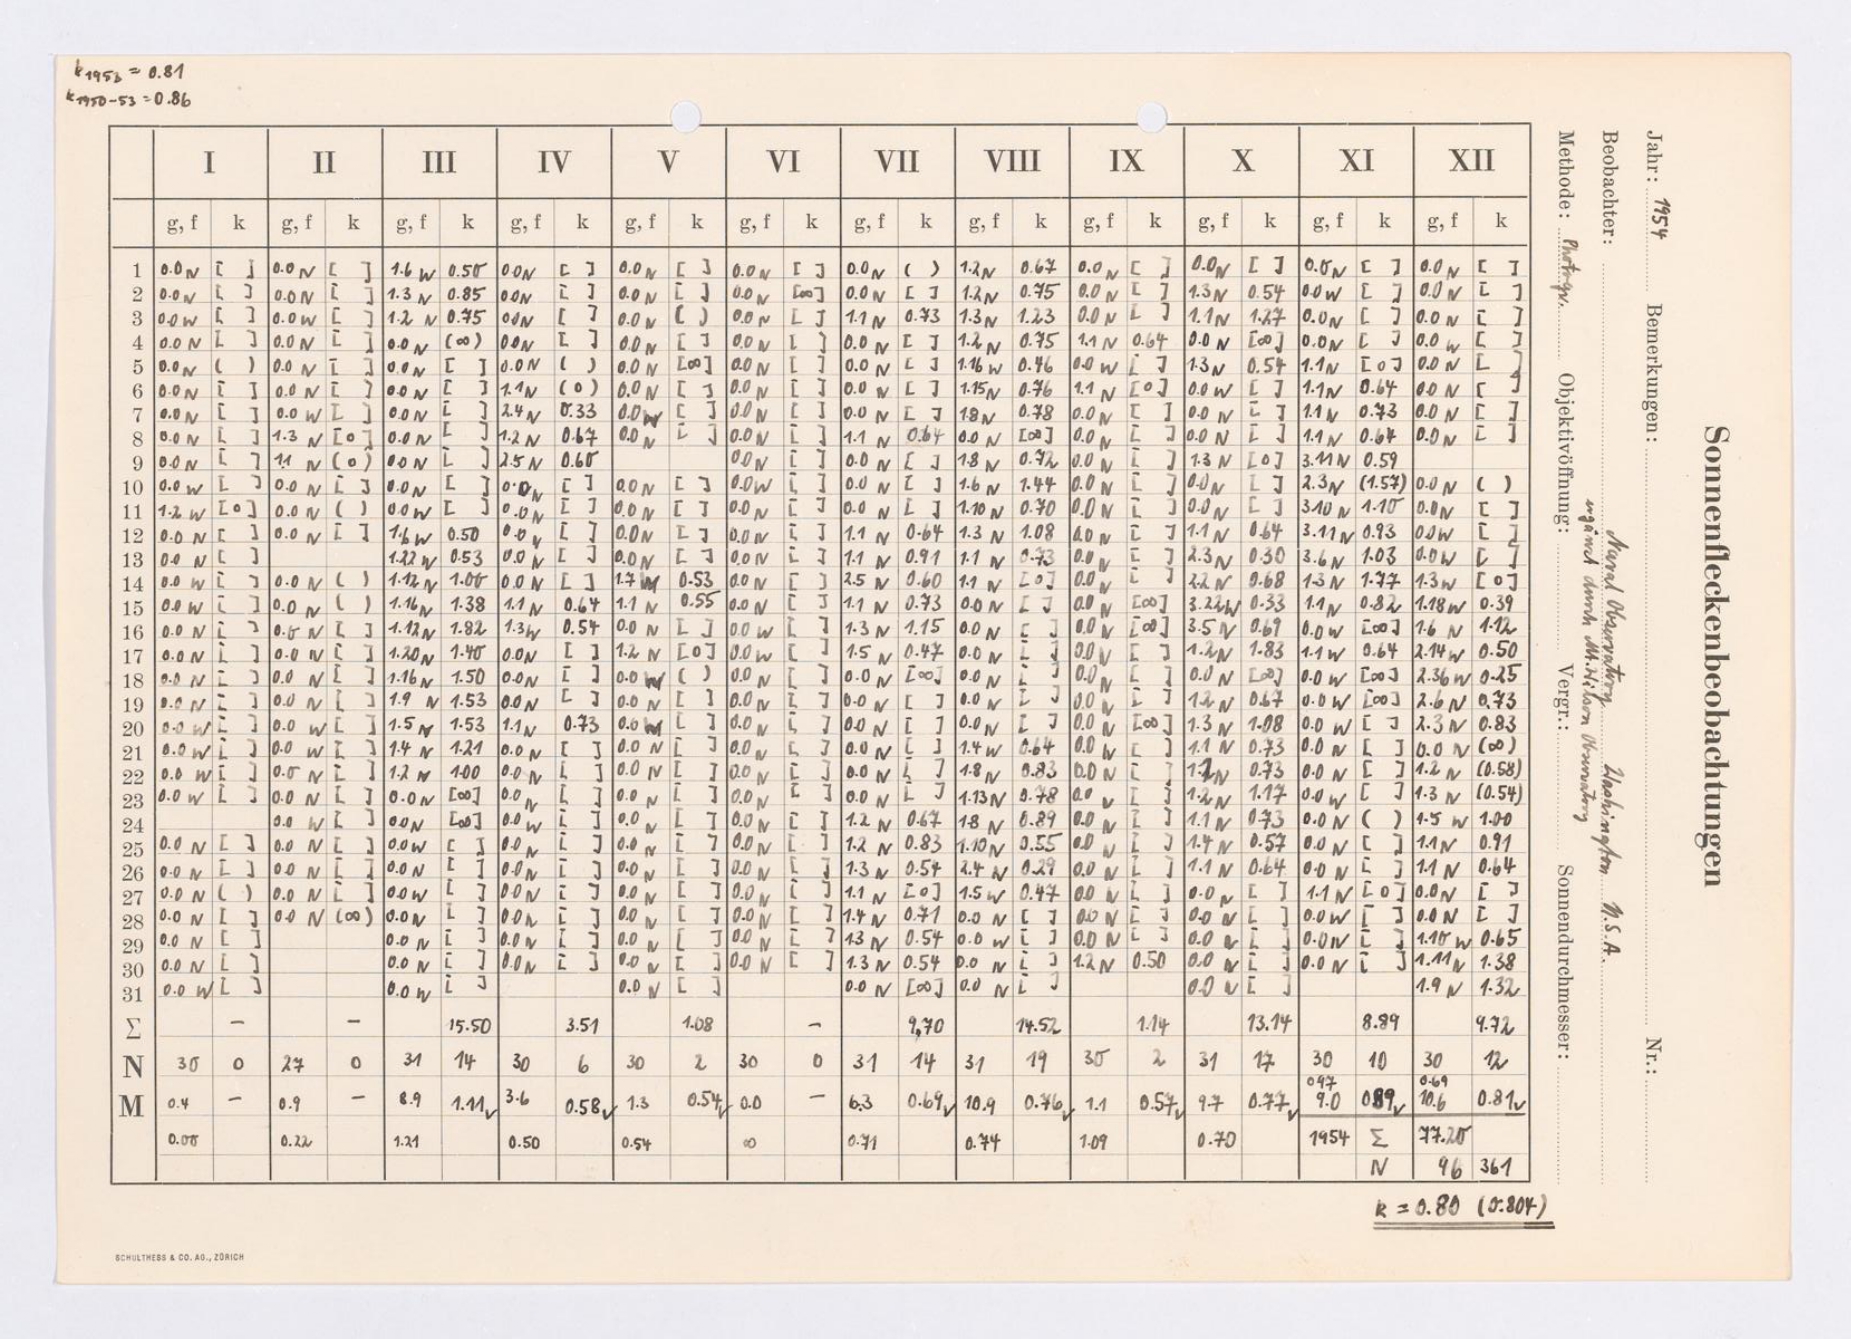 k1953 = 0.81
k1950-53 = 0.86
Sonnenfleckenbeobachtungen
Jahr: 1954 Bemerkungen: Nr.:
Beobachter: Naval Observatory Washington U.S.A.
ergänzt durch Mt. Wilson Observatory
Methode: Photogr. Objektivöffnung: Vergr.: Sonnendurchmesser:
I II III IV V VI VII VIII IX X XI XII
g, f k g, f k g, f k g, f k g, f k g, f k g, f k g, f k g, f k g, f k g, f k g, f k
1 0.0 N [ ] 0.0 N [ ] 1.6 W 0.50 0.0 N [ ] 0.0 N [ ] 0.0 N [ ] 0.0 N ( ) 1.2 N 0.67 0.0 N [ ] 0.0 N [ ] 0.0 N [ ] 0.0 N [ ]
2 0.0 N [ ] 0.0 N [ ] 1.3 N 0.85 0.0 N [ ] 0.0 N [ ] 0.0 N [∞] 0.0 N [ ] 1.2 N 0.75 0.0 N [ ] 1.3 N 0.54 0.0 W [ ] 0.0 N [ ]
3 0.0 W [ ] 0.0 W [ ] 1.2 N 0.75 0.0 N [ ] 0.0 N ( ) 0.0 N [ ] 1.1 N 0.73 1.3 N 1.23 0.0 N [ ] 1.1 N 1.27 0.0 N [ ] 0.0 N [ ]
4 0.0 N [ ] 0.0 N [ ] 0.0 N (∞) 0.0 N [ ] 0.0 N [ ] 0.0 N [ ] 0.0 N [ ] 1.2 N 0.75 1.1 N 0.64 0.0 N [∞] 0.0 N [ ] 0.0 W [ ]
5 0.0 N ( ) 0.0 N [ ] 0.0 N [ ] 0.0 N ( ) 0.0 N [∞] 0.0 N [ ] 0.0 N [ ] 1.16 W 0.46 0.0 W [ ] 1.3 N 0.54 1.1 N [0] 0.0 N [ ]
6 0.0 N [ ] 0.0 N [ ] 0.0 N [ ] 1.1 N (0) 0.0 N [ ] 0.0 N [ ] 0.0 N [ ] 1.15 N 0.76 1.1 N [0] 0.0 W [ ] 1.1 N 0.64 0.0 N [ ]
7 0.0 N [ ] 0.0 W [ ] 0.0 N [ ] 2.4 N 0.33 0.0 W [ ] 0.0 N [ ] 0.0 N [ ] 1.8 N 0.78 0.0 N [ ] 0.0 N [ ] 1.1 N 0.73 0.0 N [ ]
8 0.0 N [ ] 1.3 N [0] 0.0 N [ ] 1.2 N 0.67 0.0 N [ ] 0.0 N [ ] 1.1 N 0.64 0.0 N [∞] 0.0 N [ ] 0.0 N [ ] 1.1 N 0.64 0.0 N [ ]
9 0.0 N [ ] 1.1 N (0) 0.0 N [ ] 2.5 N 0.60 0.0 N [ ] 0.0 N [ ] 1.8 N 0.72 0.0 N [ ] 1.3 N [0] 3.11 N 0.59
10 0.0 W [ ] 0.0 N [ ] 0.0 N [ ] 0.0 N [ ] 0.0 N [ ] 0.0 W [ ] 0.0 N [ ] 1.6 N 1.44 0.0 N [ ] 0.0 N [ ] 2.3 N (1.57) 0.0 N ( )
11 1.2 W [0] 0.0 N ( ) 0.0 W [ ] 0.0 N [ ] 0.0 N [ ] 0.0 N [ ] 0.0 N [ ] 1.10 N 0.70 0.0 N [ ] 0.0 N [ ] 3.10 N 1.10 0.0 N [ ]
12 0.0 N [ ] 0.0 N [ ] 1.6 W 0.50 0.0 N [ ] 0.0 N [ ] 0.0 N [ ] 1.1 N 0.64 1.3 N 1.08 0.0 N [ ] 1.1 N 0.64 3.11 N 0.93 0.0 W [ ]
13 0.0 N [ ] 1.22 W 0.53 0.0 N [ ] 0.0 N [ ] 0.0 N [ ] 1.1 N 0.91 1.1 N 0.73 0.0 N [ ] 2.3 N 0.30 3.6 N 1.03 0.0 W [ ]
14 0.0 W [ ] 0.0 N ( ) 1.12 N 1.00 0.0 N [ ] 1.7 W 0.53 0.0 N [ ] 2.5 N 0.60 1.1 N [0] 0.0 N [ ] 2.2 N 0.68 1.3 N 1.77 1.3 W [0]
15 0.0 W [ ] 0.0 N ( ) 1.16 N 1.38 1.1 N 0.64 1.1 N 0.55 0.0 N [ ] 1.1 N 0.73 0.0 N [ ] 0.0 N [∞] 3.22 W 0.33 1.1 N 0.82 1.18 W 0.39
16 0.0 N [ ] 0.0 N [ ] 1.12 N 1.82 1.3 W 0.54 0.0 N [ ] 0.0 W [ ] 1.3 N 1.15 0.0 N [ ] 0.0 N [∞] 3.5 N 0.69 0.0 W [∞] 1.6 N 1.12
17 0.0 N [ ] 0.0 N [ ] 1.20 N 1.40 0.0 N [ ] 1.2 N [0] 0.0 W [ ] 1.5 N 0.47 0.0 N [ ] 0.0 N [ ] 1.2 N 1.83 1.1 W 0.64 2.14 W 0.50
18 0.0 N [ ] 0.0 N [ ] 1.16 N 1.50 0.0 N [ ] 0.0 W ( ) 0.0 N [ ] 0.0 N [∞] 0.0 N [ ] 0.0 N [ ] 0.0 N [∞] 0.0 W [∞] 2.36 W 0.25
19 0.0 N [ ] 0.0 N [ ] 1.9 N 1.53 0.0 N [ ] 0.0 N [ ] 0.0 N [ ] 0.0 N [ ] 0.0 N [ ] 0.0 N [ ] 1.2 N 0.67 0.0 W [∞] 2.6 N 0.73
20 0.0 W [ ] 0.0 W [ ] 1.5 N 1.53 1.1 N 0.73 0.0 W [ ] 0.0 N [ ] 0.0 N [ ] 0.0 N [ ] 0.0 N [∞] 1.3 N 1.08 0.0 W [ ] 2.3 N 0.83
21 0.0 W [ ] 0.0 W [ ] 1.4 N 1.21 0.0 N [ ] 0.0 N [ ] 0.0 N [ ] 0.0 N [ ] 1.4 W 0.64 0.0 W [ ] 1.1 N 0.73 0.0 N [ ] 0.0 N (∞)
22 0.0 W [ ] 0.0 N [ ] 1.2 N 1.00 0.0 N [ ] 0.0 N [ ] 0.0 N [ ] 0.0 N [ ] 1.8 N 0.83 0.0 N [ ] N 0.73 0.0 N [ ] 1.2 N (0.58)
23 0.0 W [ ] 0.0 N [ ] 0.0 N [∞] 0.0 N [ ] 0.0 N [ ] 0.0 N [ ] 0.0 N [ ] 1.13 N 0.78 0.0 N [ ] 1.2 N 1.17 0.0 W [ ] 1.3 N (0.54)
24 0.0 W [ ] 0.0 N [∞] 0.0 W [ ] 0.0 N [ ] 0.0 N [ ] 1.2 N 0.67 1.8 N 0.89 0.0 N [ ] 1.1 N 0.73 0.0 N ( ) 1.5 W 1.00
25 0.0 N [ ] 0.0 N [ ] 0.0 W [ ] 0.0 N [ ] 0.0 N [ ] 0.0 N [ ] 1.2 N 0.83 1.10 N 0.55 0.0 N [ ] 1.4 N 0.57 0.0 N [ ] 1.1 N 0.91
26 0.0 N [ ] 0.0 N [ ] 0.0 N [ ] 0.0 N [ ] 0.0 N [ ] 0.0 N [ ] 1.3 N 0.54 2.4 N 0.29 0.0 N [ ] 1.1 N 0.64 0.0 N [ ] 1.1 N 0.64
27 0.0 N ( ) 0.0 N [ ] 0.0 W [ ] 0.0 N [ ] 0.0 N [ ] 0.0 N [ ] 1.1 N [0] 1.5 W 0.47 0.0 N [ ] 0.0 N [ ] 1.1 N [0] 0.0 N [ ]
28 0.0 N [ ] 0.0 N (∞) 0.0 N [ ] 0.0 N [ ] 0.0 N [ ] 0.0 N [ ] 1.4 N 0.71 0.0 N [ ] 0.0 N [ ] 0.0 N [ ] 0.0 W [ ] 0.0 N [ ]
29 0.0 N [ ] 0.0 N [ ] 0.0 N [ ] 0.0 N [ ] 0.0 N [ ] 1.3 N 0.54 0.0 W [ ] 0.0 N [ ] 0.0 N [ ] 0.0 N [ ] 1.10 W 0.65
30 0.0 N [ ] 0.0 N [ ] 0.0 N [ ] 0.0 N [ ] 0.0 N [ ] 1.3 N 0.54 0.0 N [ ] 1.2 N 0.50 0.0 N [ ] 0.0 N [ ] 1.11 N 1.38
31 0.0 W [ ] 0.0 W [ ] 0.0 N [ ] 0.0 N [∞] 0.0 N [ ] 0.0 N [ ] 1.9 N 1.32
Σ – – 15.50 3.51 1.08 – 9.70 14.52 1.14 13.14 8.89 9.72
N 30 0 27 0 31 14 30 6 30 2 30 0 31 14 31 19 30 2 31 17 30 10 30 12
0.97 0.69
M 0.4 – 0.9 – 8.9 1.11✓ 3.6 0.58✓ 1.3 0.54✓ 0.0 – 6.3 0.69✓ 10.9 0.76✓ 1.1 0.57✓ 9.7 0.77✓ 9.0 0.89✓ 10.6 0.81✓
0.00 0.22 1.21 0.50 0.54 ∞ 0.71 0.74 1.09 0.70 1954 Σ 77.20
N 96 361
k = 0.80 (0.804)
SCHULTHESS & CO. AG., ZÜRICH